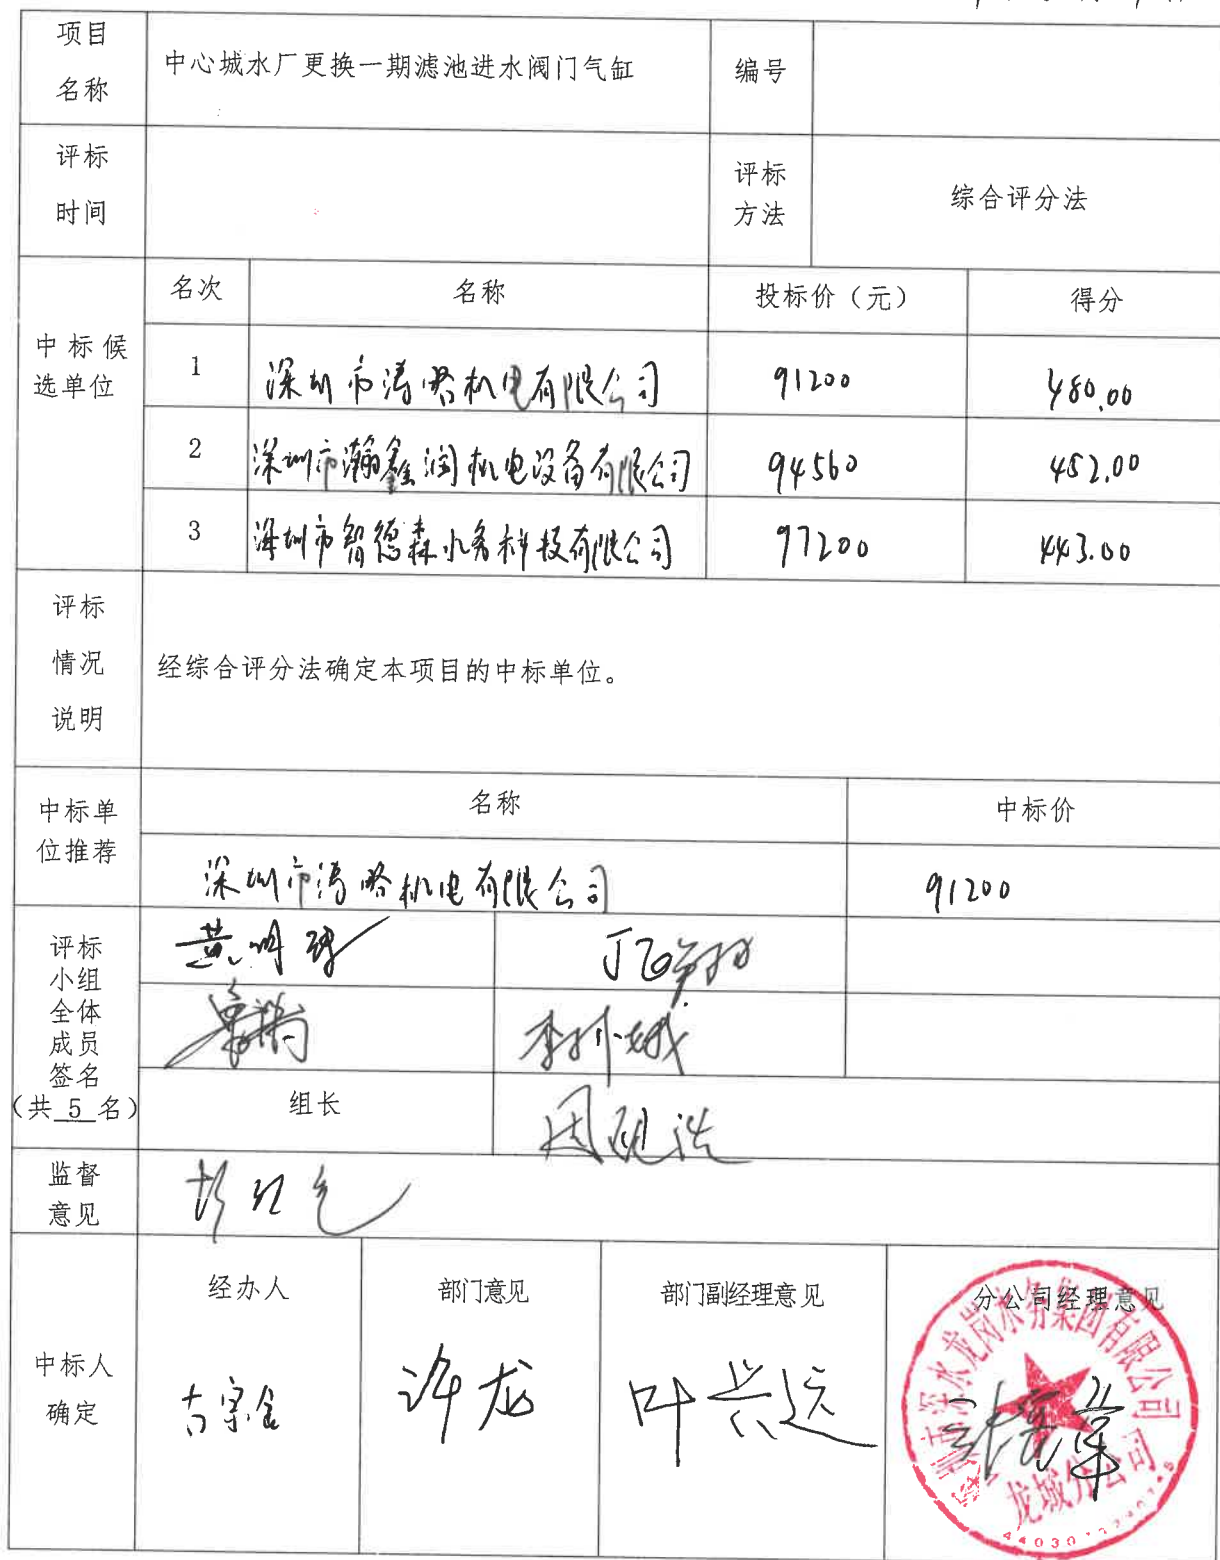 项目
名称
中心城水厂更换一期滤池进水阀门气缸
编号
评标
时间
评标
方法
综合评分法
中标候
选单位
名次
名称
投标价（元）
得分
1
深圳市涛略机电有限公司
91200
480.00
2
深圳市瀚鑫润机电设备有限公司
94560
452.00
3
深圳市智德森水务科技有限公司
97200
443.00
评标
情况
说明
经综合评分法确定本项目的中标单位。
中标单
位推荐
名称
中标价
深圳市涛略机电有限公司
91200
评标
小组
全体
成员
签名
（共 5 名）
组长
监督
意见
中标人
确定
经办人
部门意见
部门副经理意见
分公司经理意见
许龙
叶兴远
深圳市深水龙岗水务集团有限公司
龙城分公司